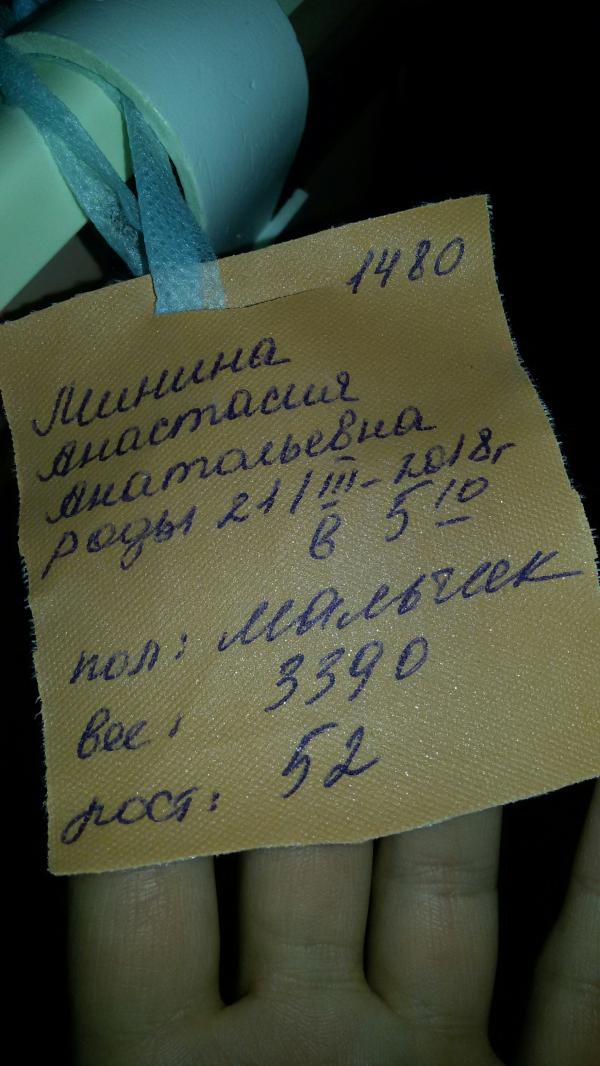 1480
Минина
Анастасия
Анатольевна
роды 21/III-2018г
в 5 10
пол: мальчик
вес: 3390
рост: 52